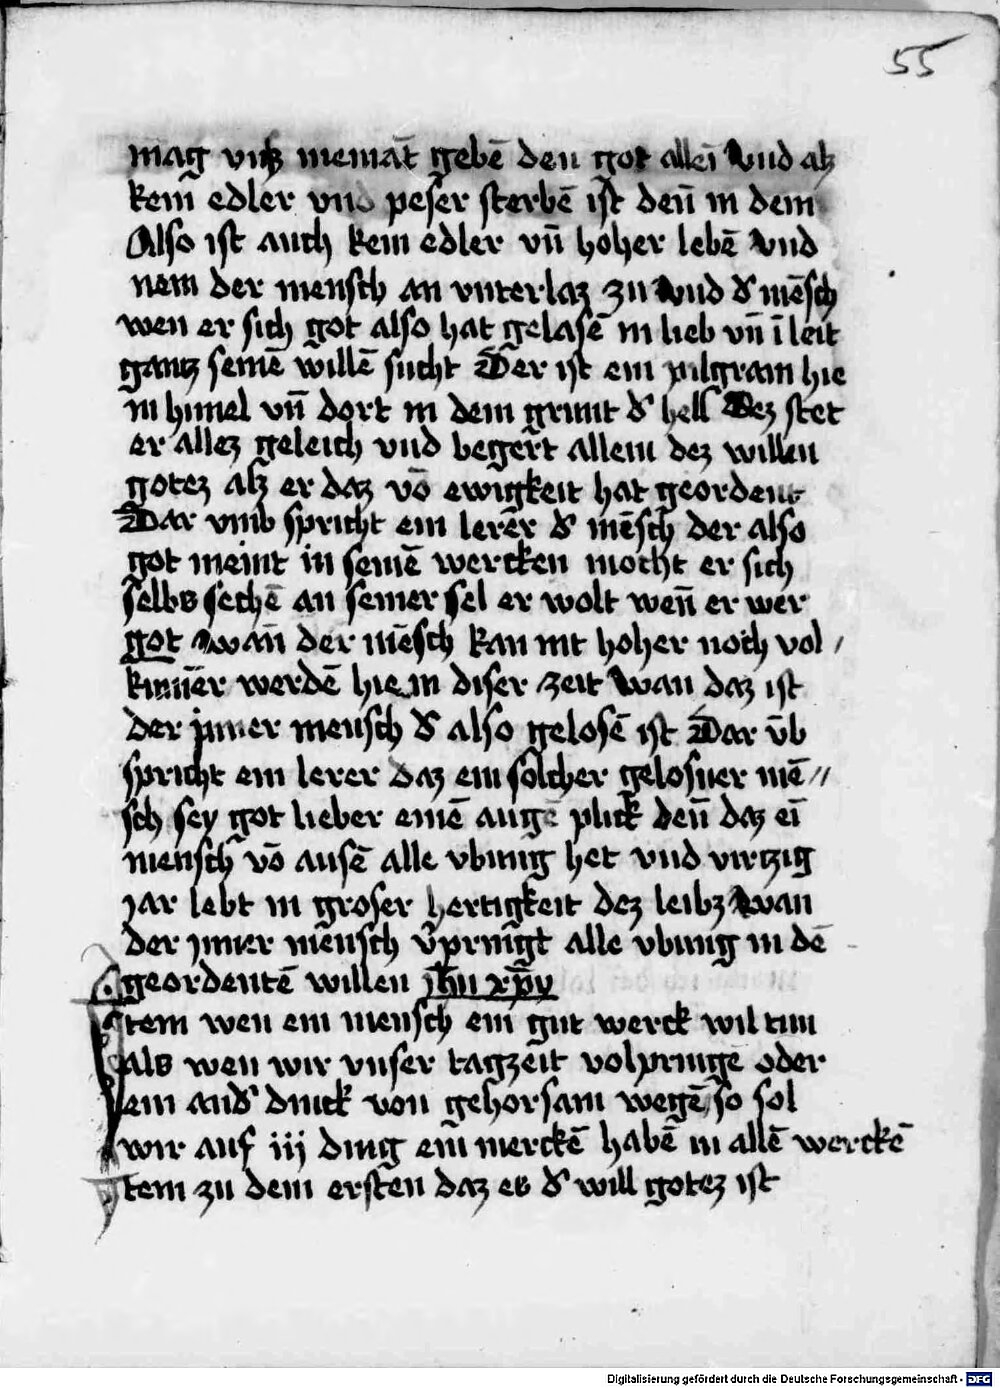 55
mag vnß niemāt gebē den got alleī Vnd alz
kein edler vnd peser sterbē ist deñ in dem
Also ist auch kein edler vñ hoher lebē Vnd
nem der mensch an vnterlaz zu Vnd dʾ mēsch
wen er sich got also hat gelasē in lieb vñ ī leit
gantz seinē willē sucht Der ist ein pilgram hie
in himel vñ dort in dem grunt dʾ hell Dez stet
er allez geleich vnd begert allein dez willen
gotez alz er daz vō ewigkeit hat geordent
Dar vmb spricht ein lerer dʾ mēsch der also
got meint in seinē wercken mocht er sich
selbs sechē an seiner sel er wolt wen̄ er wer
got Wan̄ der mēsch kan nit hoher noch vol /
kumēr werdē hie in diser zeit Wan daz ist
der jnner mensch dʾ also gelosē ist Dar v̄b
spricht ein lerer daz ein solcher gelosner mē //
sch sey got lieber einē augē plick den̄ daz eī
mensch vō ausē alle vbung het vnd virtzig
jar lebt in groser hertigkeit dez leibz Wan
der jnner mensch v̄prnigt alle vbung in dē
geordentē willen jh̄u xp̄y
Jtem wen ein mensch ein gut werck wil tun
als wen wir vnser tagzeit volpringē oder
ein andʾ dinck von gehorsam wegē so sol
wir auf iij ding ein merckē habē in allē werckē
Jtem zu dem ersten daz es dʾ will gotez ist
Digitalisierung gefördert durch die Deutsche Forschungsgemeinschaft - DFG